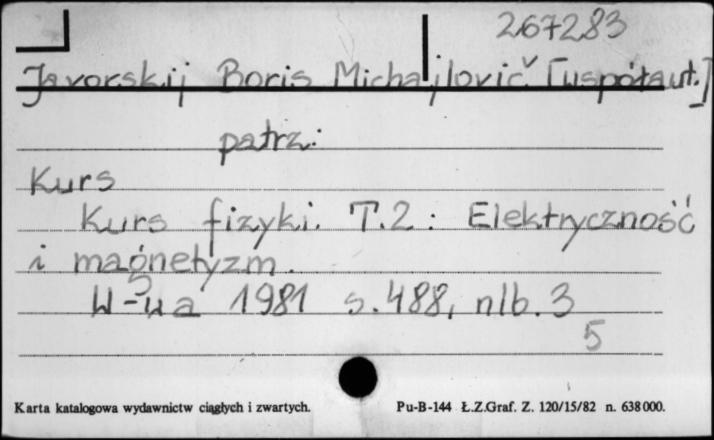 267283
Javorskij Boris Michajlovič [współaut.]
patrz:
Kurs
Kurs fizyki. T.2: Elektryczność
i magnetyzm.
W-wa 1981 s.488, nlb.3
5
Karta katalogowa wydawnictw ciągłych i zwartych. Pu-B-144 Ł.Z.Graf. Z. 120/15/82 n. 638000.